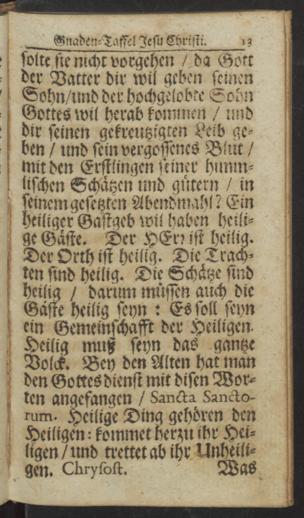 Gnaden-Taffel Jesu Christi. 13
solte sie nicht vorgehen / da Gott
der Vatter dir wil geben seinen
Sohn/und der hochgelobte Sohn
Gottes wil herab kommen / und
dir seinen gekreutzigten Leib ge-
ben / und sein vergossenes Blut /
mit den Erstlingen seiner himm-
lischen Schätzen und gütern / in
seinem gesetzten Abendmahl? Ein
heiliger Gastgeb wil haben heili-
ge Gäste. Der HErr ist heilig.
Der Orth ist heilig. Die Trach-
ten sind heilig. Die Schätze sind
heilig / darum müssen auch die
Gäste heilig seyn : Es soll seyn
ein Gemeinschafft der Heiligen.
Heilig muß seyn das gantze
Volck. Bey den Alten hat man
den Gottesdienst mit disen Wor-
ten angefangen / Sancta Sancto-
rum. Heilige Ding gehören den
Heiligen: kommet herzu ihr Hei-
ligen / und trettet ab ihr Unheili-
gen. Chrysost. Was